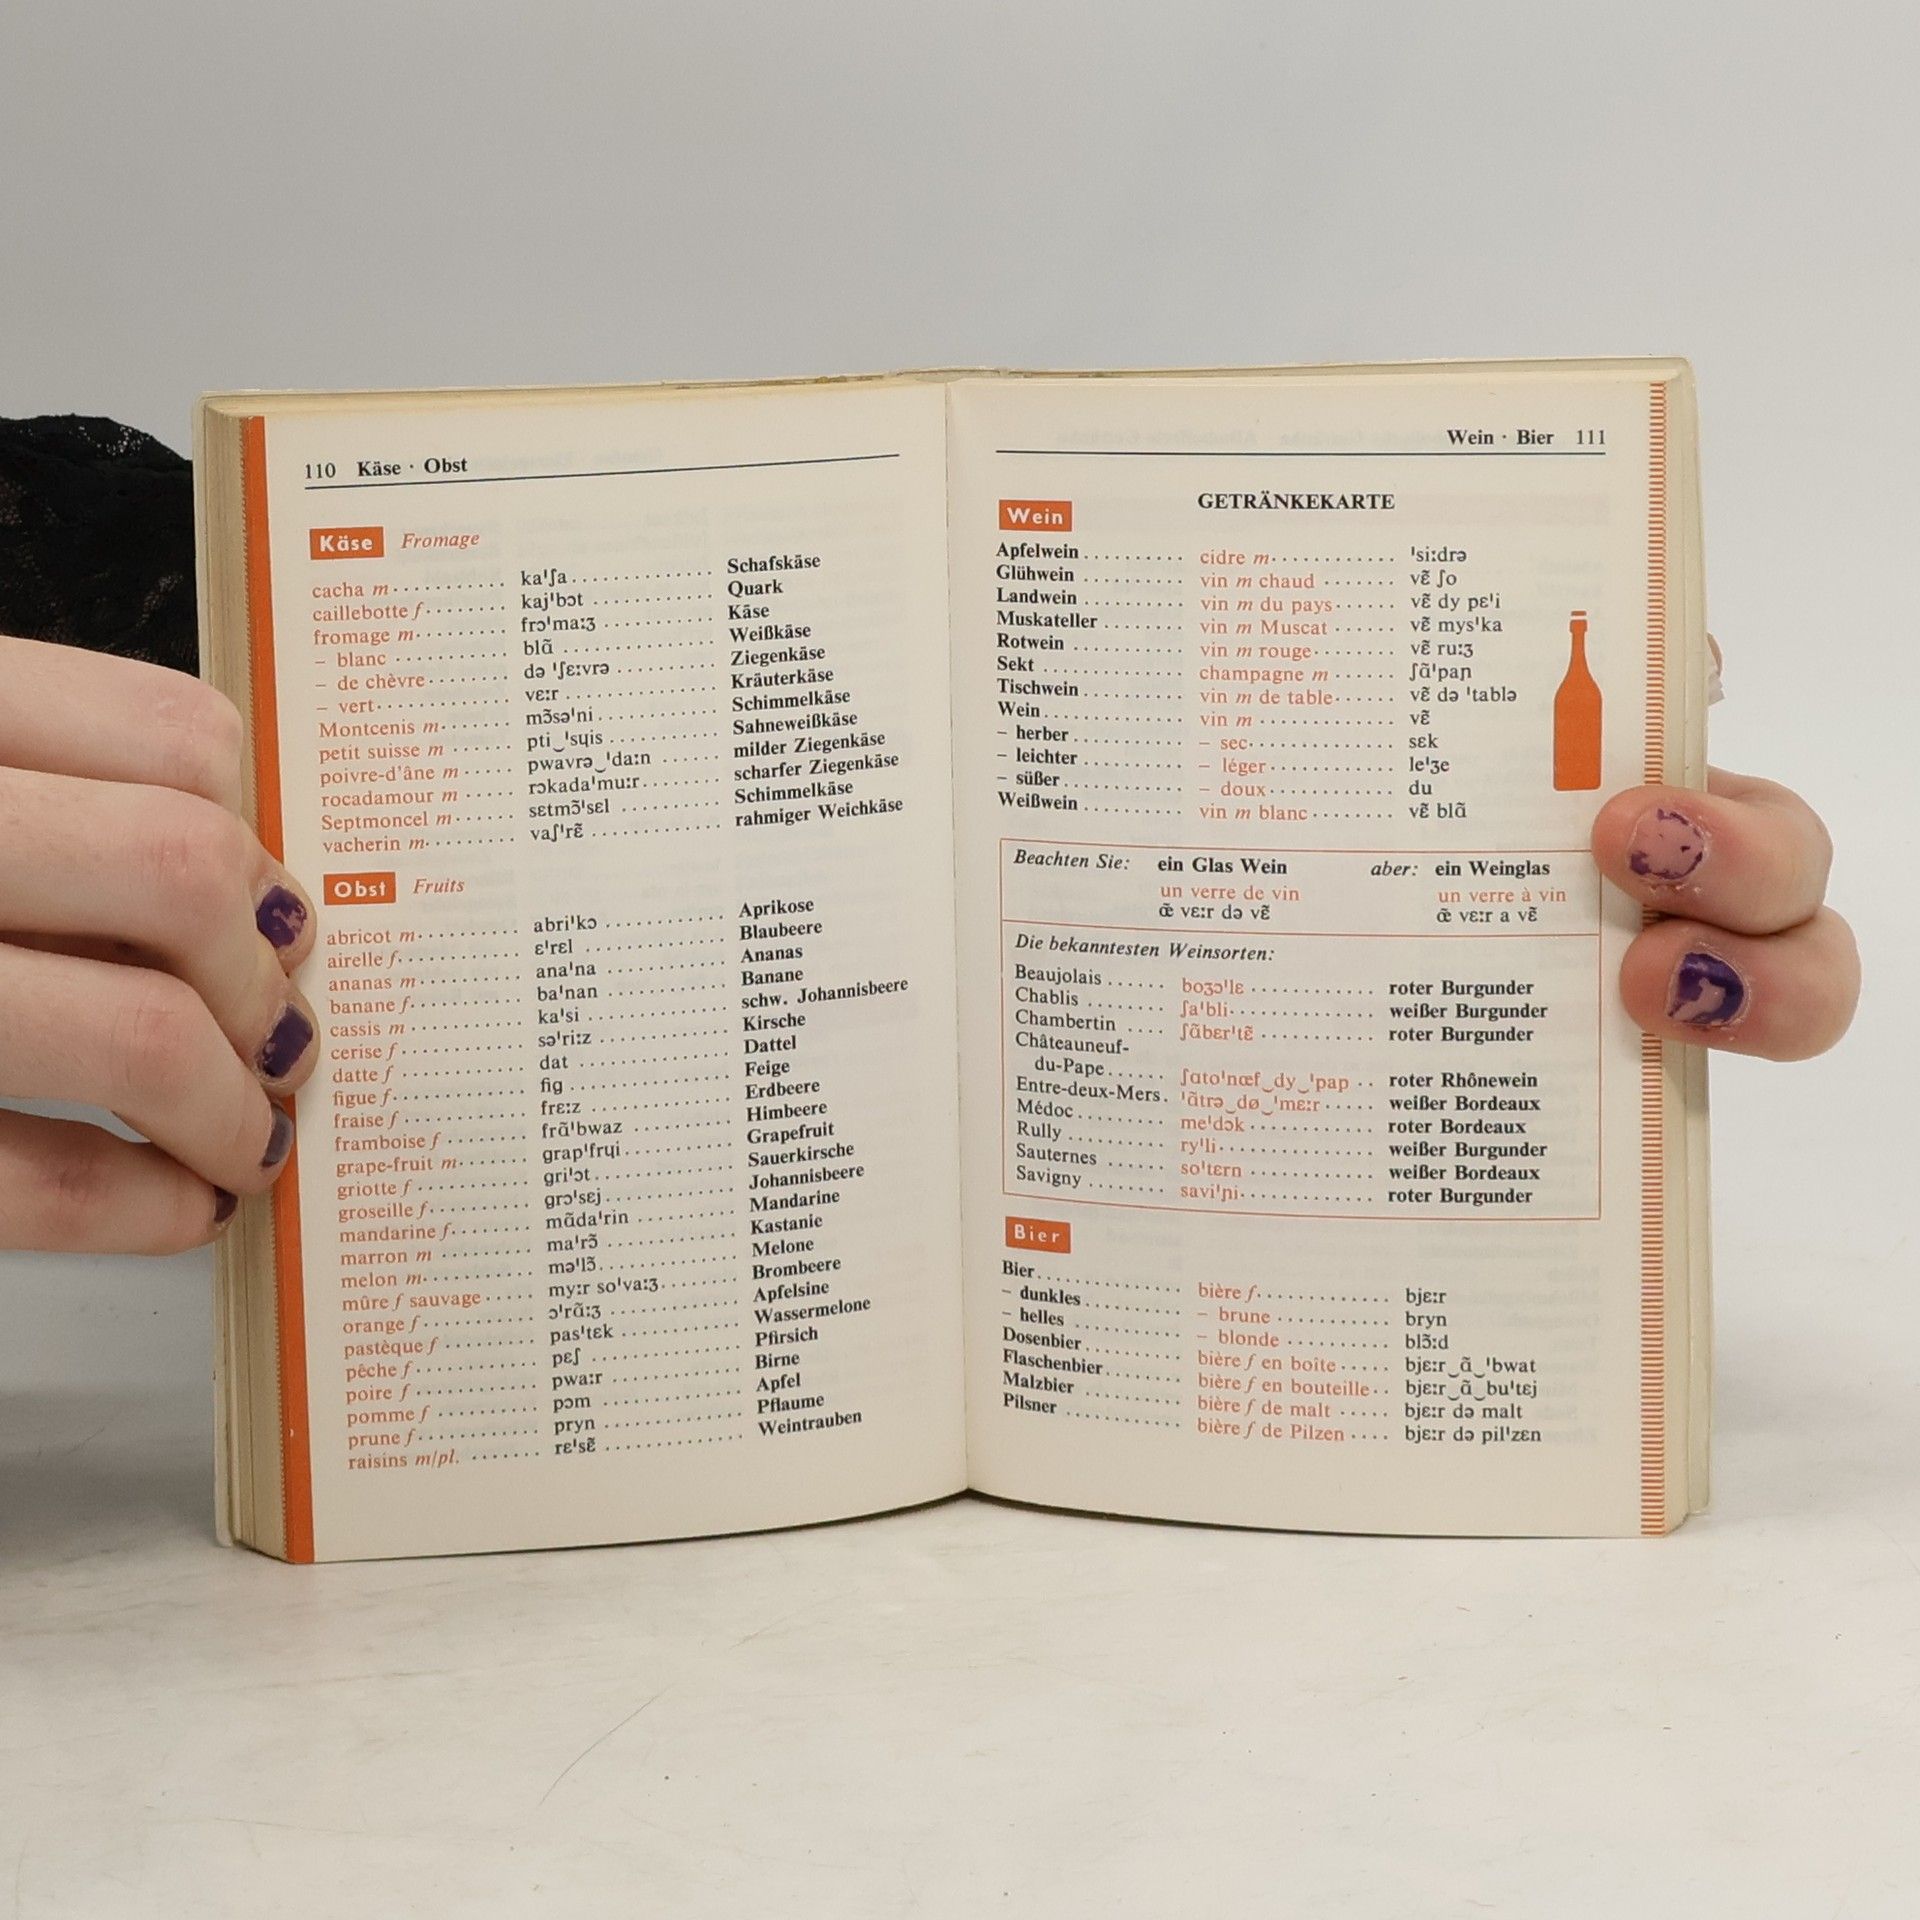 110 Käse · Obst
Käse Fromage
cacha m.......... ka'ʃa.............. Schafskäse
caillebotte f........ kaj'bɔt ............ Quark
fromage m......... frɔ'ma:ʒ ........... Käse
– blanc .......... blɑ̃ ................ Weißkäse
– de chèvre........ də 'ʃɛ:vrə ........... Ziegenkäse
– vert............ vɛ:r ................ Kräuterkäse
Montcenis m....... mɔ̃sə'ni............ Schimmelkäse
petit suisse m ...... pti‿'sɥis ........... Sahneweißkäse
poivre-d'âne m..... pwavrə‿'da:n ...... milder Ziegenkäse
rocadamour m ..... rɔkada'mu:r........ scharfer Ziegenkäse
Septmoncel m...... sɛtmɔ̃'sɛl .......... Schimmelkäse
vacherin m......... vaʃ'rɛ̃ ............. rahmiger Weichkäse
Obst Fruits
abricot m.......... abri'kɔ ............ Aprikose
airelle f............ ɛ'rɛl .............. Blaubeere
ananas m.......... ana'na ............ Ananas
banane f........... ba'nan ............ Banane
cassis m ........... ka'si .............. schw. Johannisbeere
cerise f............ sə'ri:z ............ Kirsche
datte f ............ dat ................ Dattel
figue f............. fig ................ Feige
fraise f ............ frɛ:z .............. Erdbeere
framboise f ........ frɑ̃'bwaz .......... Himbeere
grape-fruit m....... grap'frɥi........... Grapefruit
griotte f ........... gri'ɔt.............. Sauerkirsche
groseille f.......... grɔ'sɛj............. Johannisbeere
mandarine f........ mɑ̃da'rin .......... Mandarine
marron m ......... ma'rɔ̃ ............. Kastanie
melon m.......... mə'lɔ̃.............. Melone
mûre f sauvage ..... my:r so'va:ʒ........ Brombeere
orange f........... ɔ'rɑ̃:ʒ ............. Apfelsine
pastèque f ......... pas'tɛk ............ Wassermelone
pêche f ............ pɛʃ ................ Pfirsich
poire f ............ pwa:r .............. Birne
pomme f .......... pɔm ............... Apfel
prune f............ pryn .............. Pflaume
raisins m/pl. ....... rɛ'sɛ̃ .............. Weintrauben
Wein · Bier 111
GETRÄNKEKARTE
Wein
Apfelwein .......... cidre m............ 'si:drə
Glühwein .......... vin m chaud ....... vɛ̃ ʃo
Landwein .......... vin m du pays...... vɛ̃ dy pɛ'i
Muskateller ........ vin m Muscat ...... vɛ̃ mys'ka
Rotwein ........... vin m rouge........ vɛ̃ ru:ʒ
Sekt .............. champagne m ...... ʃɑ̃'paɲ
Tischwein .......... vin m de table...... vɛ̃ də 'tablə
Wein.............. vin m ............. vɛ̃
– herber ........... – sec.............. sɛk
– leichter .......... – léger............ le'ʒe
– süßer ............ – doux............ du
Weißwein .......... vin m blanc ........ vɛ̃ blɑ̃
Beachten Sie: ein Glas Wein aber: ein Weinglas
un verre de vin un verre à vin
œ̃ vɛ:r də vɛ̃ œ̃ vɛ:r a vɛ̃
Die bekanntesten Weinsorten:
Beaujolais ...... boʒɔ'lɛ ............ roter Burgunder
Chablis ........ ʃa'bli.............. weißer Burgunder
Chambertin .... ʃɑ̃bɛr'tɛ̃ ........... roter Burgunder
Châteauneuf-
du-Pape...... ʃɑto'nœf‿dy‿'pap .. roter Rhônewein
Entre-deux-Mers. 'ɑ̃trə‿dø‿'mɛ:r ..... weißer Bordeaux
Médoc......... me'dɔk ............ roter Bordeaux
Rully .......... ry'li............... weißer Burgunder
Sauternes ...... so'tɛrn ............ weißer Bordeaux
Savigny ........ savi'ɲi............. roter Burgunder
Bier
Bier............... bière f............. bjɛ:r
– dunkles.......... – brune ........... bryn
– helles ........... – blonde .......... blɔ̃:d
Dosenbier.......... bière f en boîte ..... bjɛ:r‿ɑ̃‿'bwat
Flaschenbier........ bière f en bouteille.. bjɛ:r‿ɑ̃‿bu'tɛj
Malzbier .......... bière f de malt ..... bjɛ:r də malt
Pilsner ............ bière f de Pilzen .... bjɛ:r də pil'zɛn